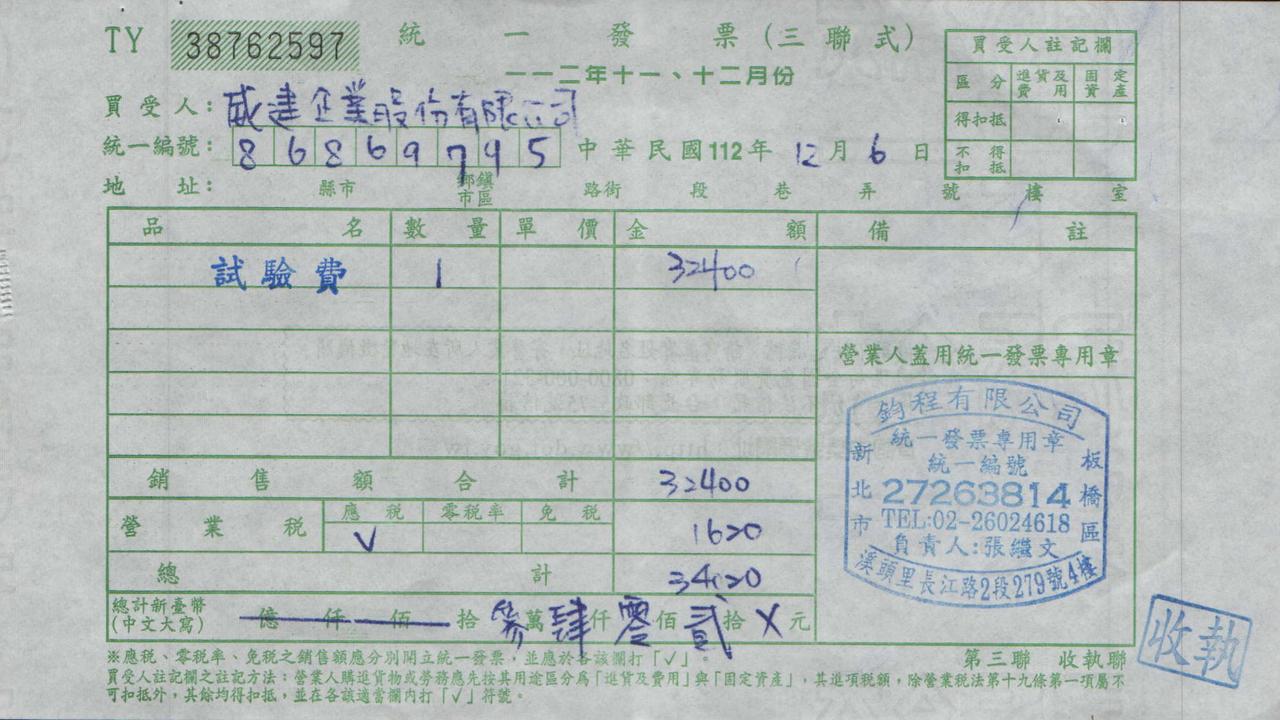 TY 38762597 統一發票(三聯式)
一一二年十一、十二月份
買受人註記欄
區分 進貨及費用 固定資產
得扣抵
不得扣抵
買受人:威建企業股份有限公司
統一編號:86869795 中華民國112年12月6日
地址: 縣市 鄉鎮市區 路街 段 巷 弄 號 樓 室
品名 數量 單價 金額 備註
試驗費 1 32400
營業人蓋用統一發票專用章
銷售額合計 32400
營業稅 應稅 零稅率 免稅
V 1620
總計 34020
總計新臺幣(中文大寫) 億仟佰拾參萬肆仟零佰貳拾X元
鈞程有限公司
統一發票專用章
統一編號
27263814
TEL:02-26024618
負責人:張繼文
新北市板橋區
溪頭里長江路2段279號4樓
收執
※應稅、零稅率、免稅之銷售額應分別開立統一發票,並應於各該欄打「✓」。
第三聯 收執聯
買受人註記欄之註記方法:營業人購進貨物或勞務應先按其用途區分為「進貨及費用」與「固定資產」,其進項稅額,除營業稅法第十九條第一項屬不
可扣抵外,其餘均得扣抵,並在各該適當欄內打「✓」符號。